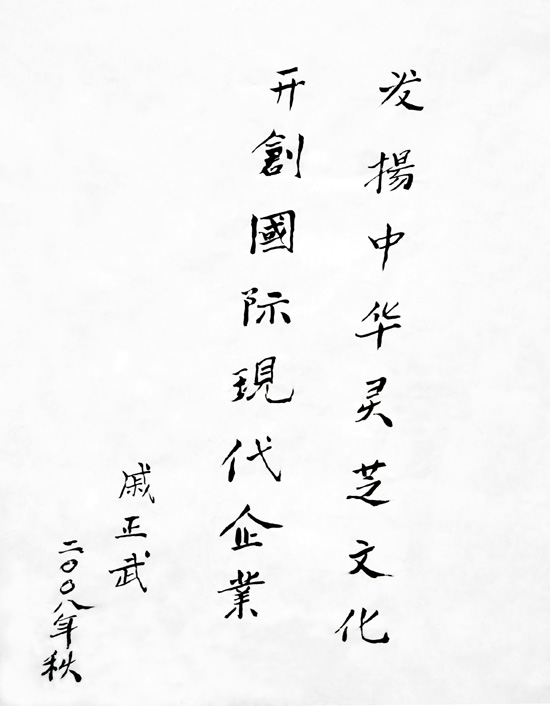 发揚中华灵芝文化
开創國际現代企業
戚正武
二〇〇八年秋